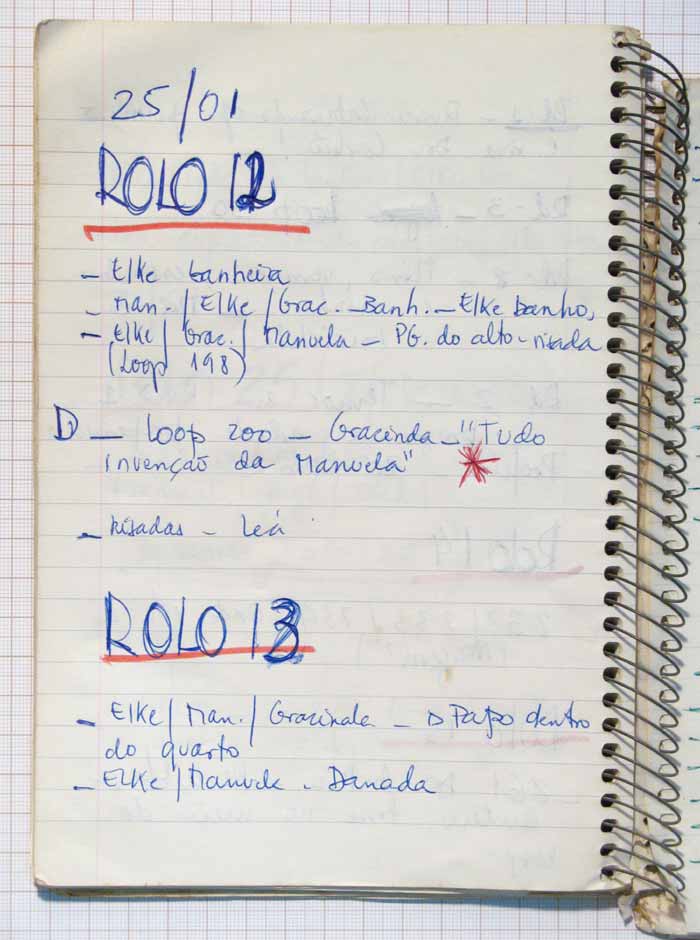 25/01
ROLO 12
- Elke banheira
- Man. / Elke / Grac. - Banh. - Elke banho,
- Elke / Grac. / Manuela - PG. do alto - risada
(Loop 198)
D - Loop 200 - Gracinda - "Tudo
invenção da Manuela" *
- Risadas - Leá
ROLO 13
- Elke / Man. / Gracinda - Papo dentro
do quarto
- Elke / Manuela - Danada